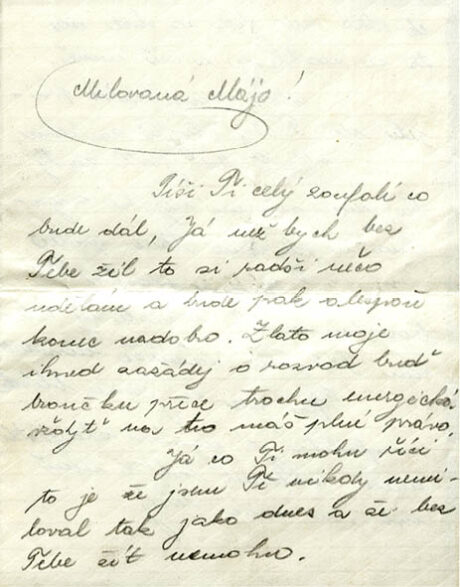 Milovaná Májo!
Píši Ti celý zoufalí co
bude dál, Já než bych bez
Tebe žil to si radši něco
udělám a bude pak alespoň
konec nadobro. Zlato moje
ihned zažádej o rozvod buď
trochu energická
vždyť na to máš plné právo.
Já co Ti mohu říci
to je že jsem Tě nikdy nemi-
loval tak jako dnes a že bez
Tebe žít nemohu.